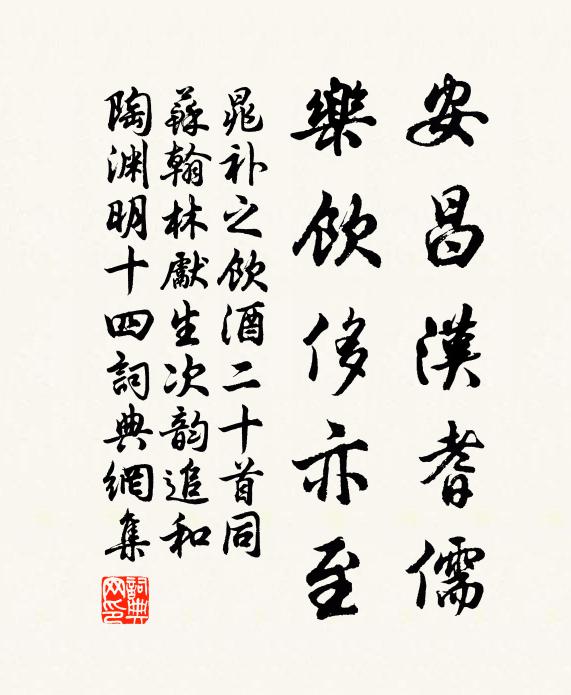 安昌漢耆儒
樂飲侈亦至
晁补之飲酒二十首同
蘇翰林獻生次韵追和
陶渊明十四詞典網集
詞典网印